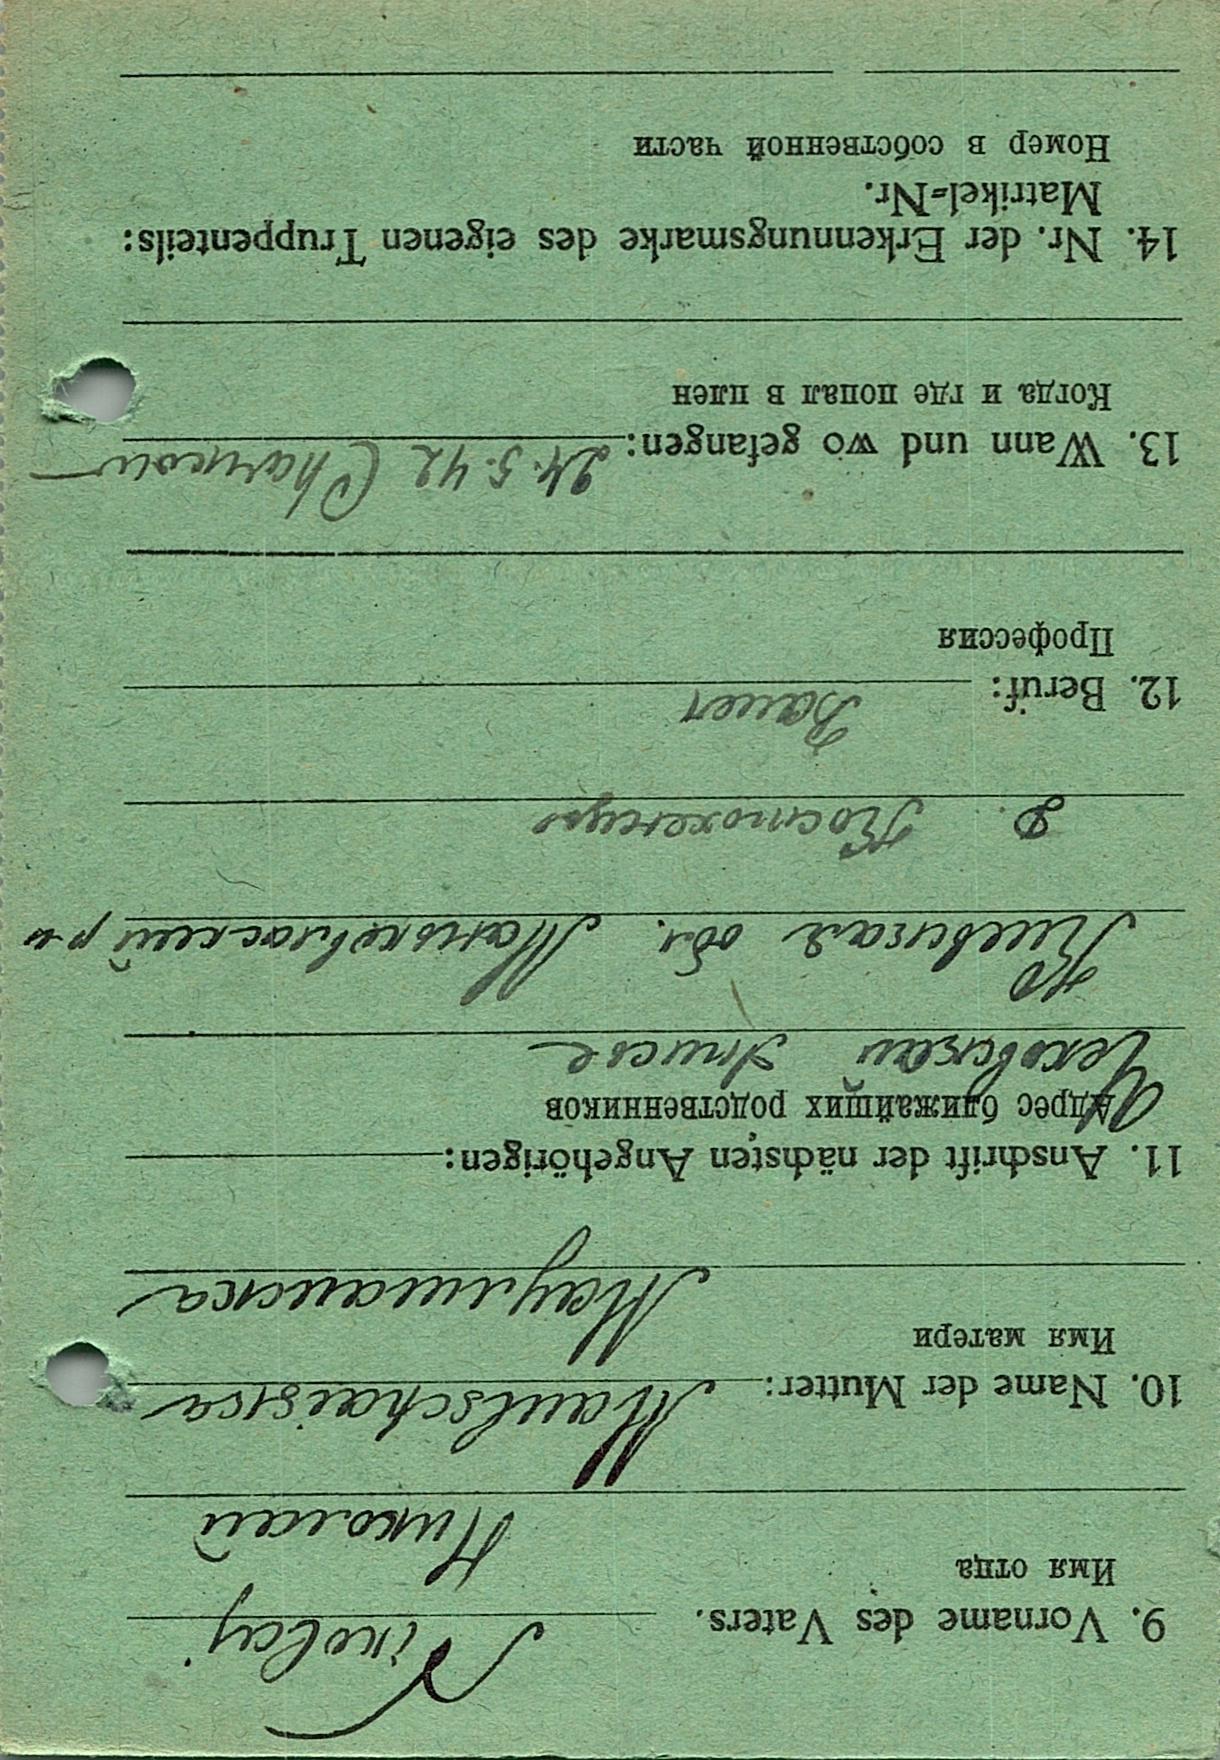 9. Vorname des Vaters. Nikolaj
Имя отца
Николай
10. Name der Mutter:
Имя матери
11. Anschrift der nächsten Angehörigen:
Адрес ближайщих родственников
Киевская обл. р-н
д.
12. Beruf: Bauer
Профессия
13. Wann und wo gefangen: 24.5.42 Charkow
Когда и где попал в плен
14. Nr. der Erkennungsmarke des eigenen Truppenteils:
Matrikel=Nr.
Номер в собственной части